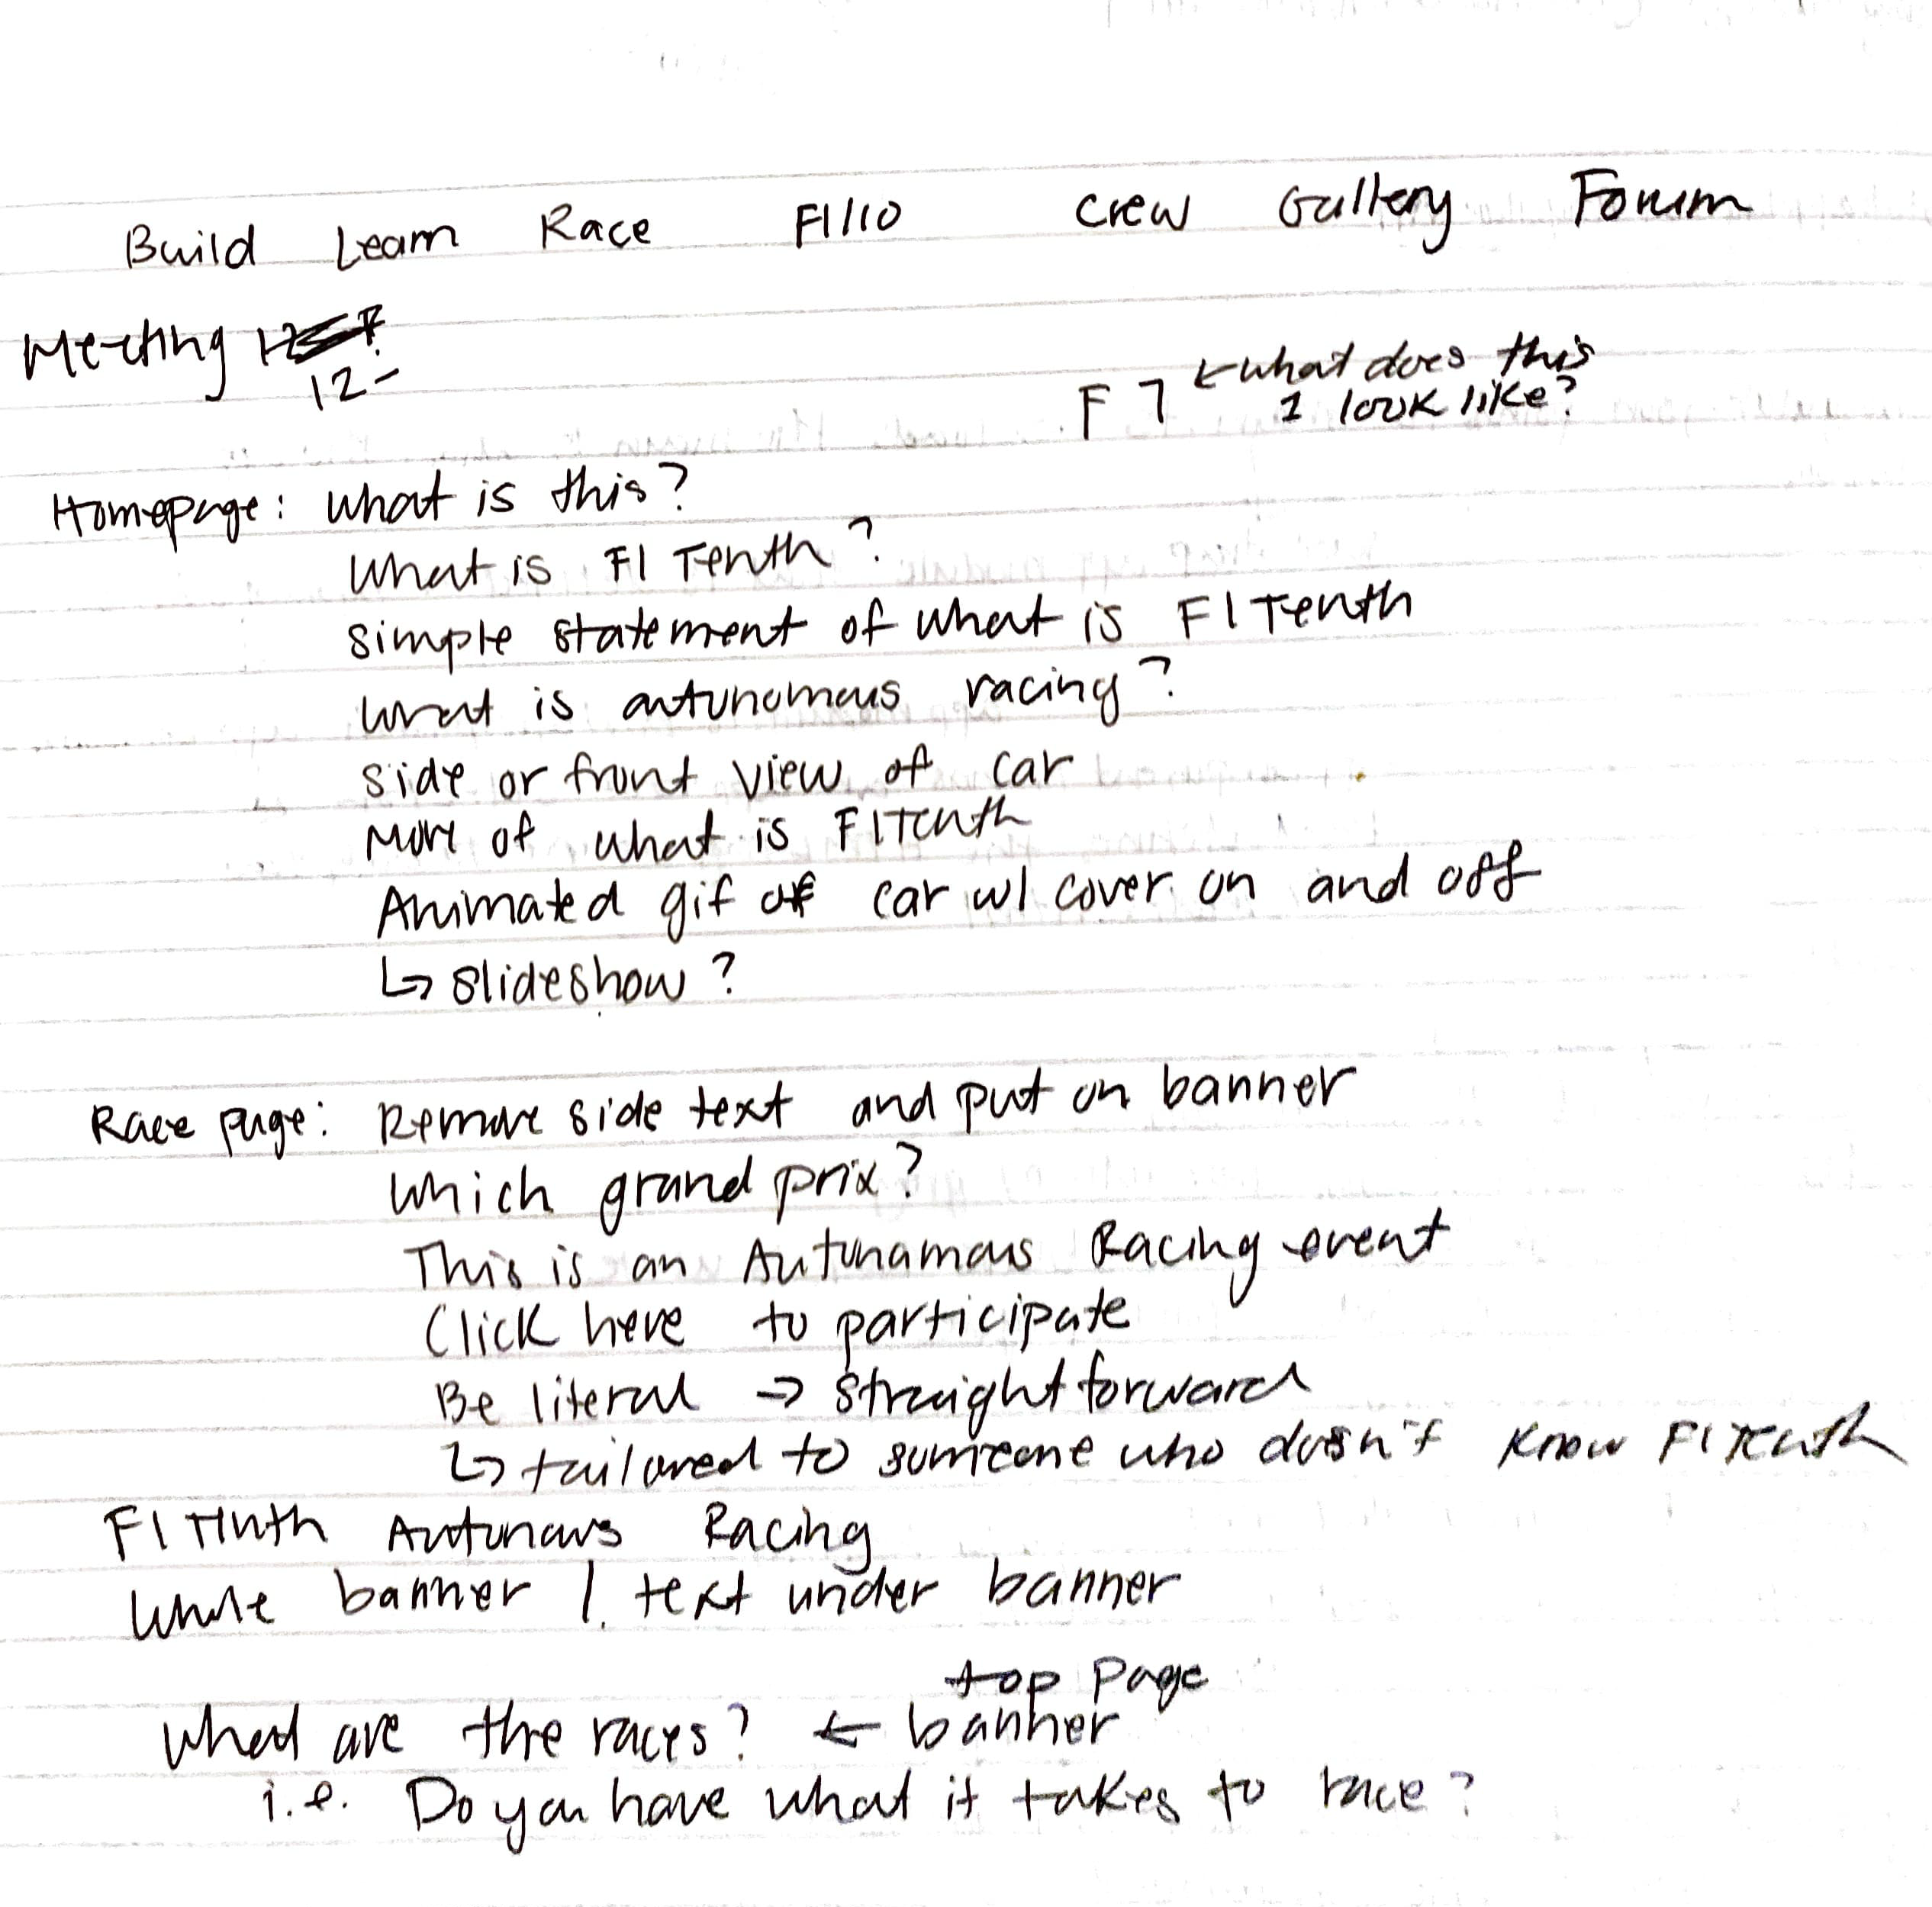 Build Learn Race F1/10 Crew Gallery Forum
Meeting
12-
F 1 ← what does this
1 look like?
Homepage: what is this?
What is F1 Tenth?
simple statement of what is F1Tenth
what is autonomous racing?
side or front view of car
More of what is F1Tenth
Animated gif of car w/ cover on and off
↳ slideshow?
Race page: Remove side text and put on banner
Which grand prix?
This is an Autunamous Racing event
Click here to participate
Be literal → straight forward
↳ tailored to someone who doesn't know F1Tenth
F1 Tenth Autonous Racing
Whole banner / text under banner
top page
What are the races? ← banner
i.e. Do you have what it takes to race?